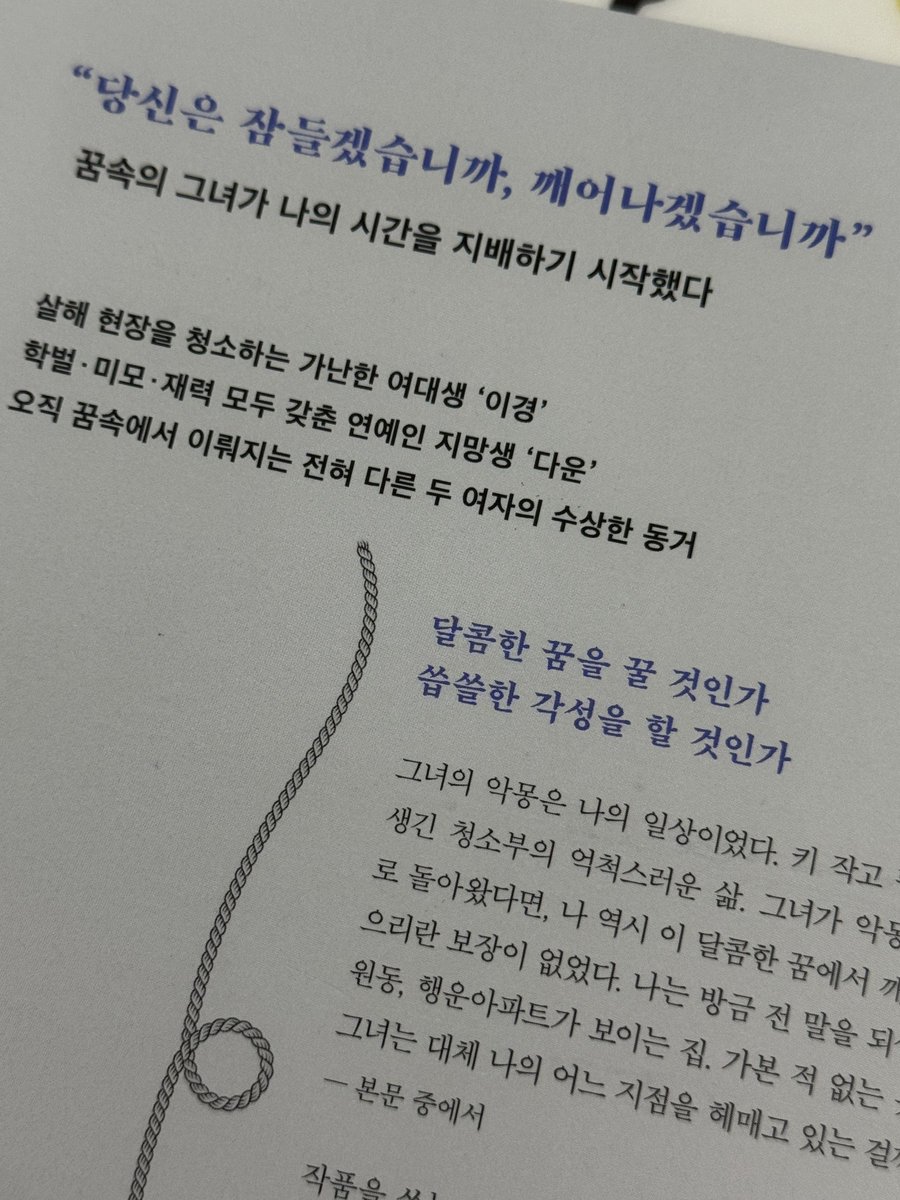 “당신은 잠들겠습니까, 깨어나겠습니까”
꿈속의 그녀가 나의 시간을 지배하기 시작했다
살해 현장을 청소하는 가난한 여대생 ‘이경’
학벌·미모·재력 모두 갖춘 연예인 지망생 ‘다운’
오직 꿈속에서 이뤄지는 전혀 다른 두 여자의 수상한 동거
달콤한 꿈을 꿀 것인가
씁쓸한 각성을 할 것인가
그녀의 악몽은 나의 일상이었다. 키 작고
생긴 청소부의 억척스러운 삶. 그녀가
로 돌아왔다면, 나 역시 이 달콤한 꿈에서
으리란 보장이 없었다. 나는 방금 전 말을
원동, 행운아파트가 보이는 집. 가본 적 없는
그녀는 대체 나의 어느 지점을 헤매고 있는
— 본문 중에서
작품을